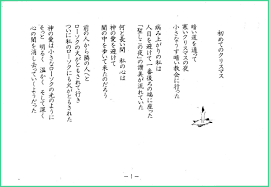 初めてのクリスマス
暗い道を通って
寒いクリスマスの夜
小さなうす暗い教会に行った
病み上がりの私は
人目を避けて一番後ろの端に座った
「聖しこの夜」の讃美が流れていた
何と長い間 私の心は
神の愛を避けて
闇の中を歩いて来たのだろう
前の人から隣の人へと
ローソクの火がともされて行き
ついに私のローソクにも火がともされた
神の愛は小さなローソクの光のように
そっと 明るく 温かく そして深く
心の闇を消し去っていくようだった
- 1 -